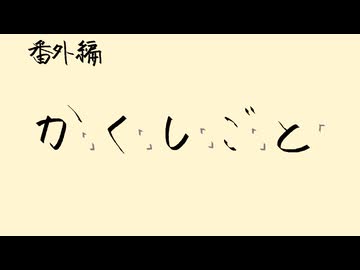 番外編
か」「く」「し」「ご」「と「